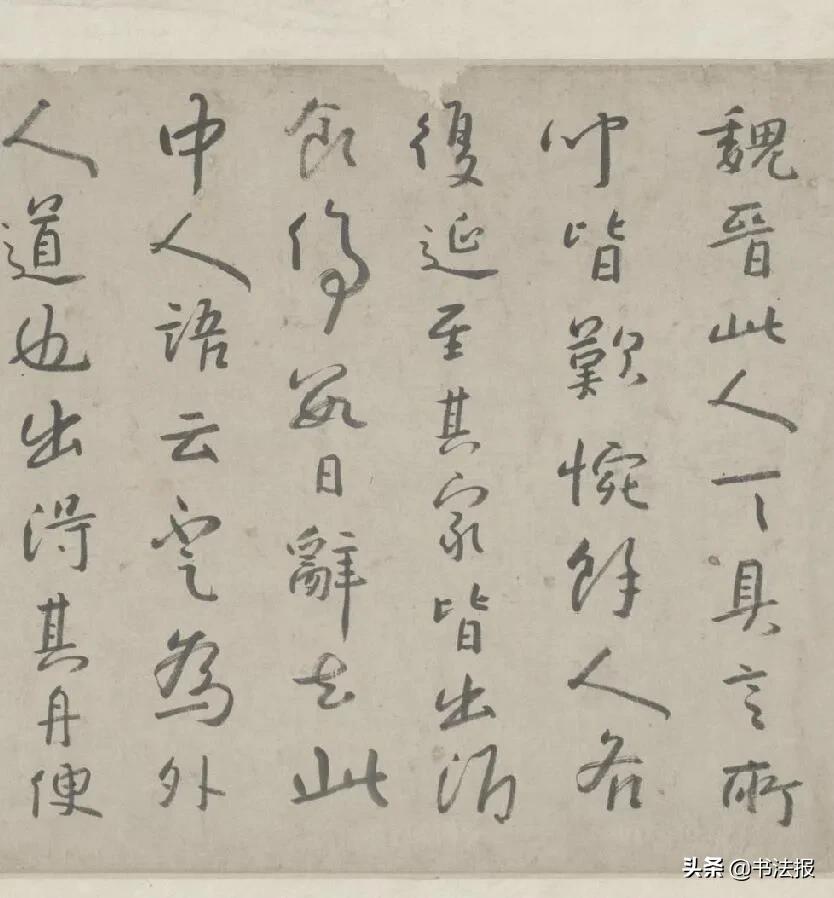 魏晉此人一一具言所
聞皆歎惋餘人各
復延至其家皆出酒
食停數日辭去此
中人語云不足為外
人道也出得其舟便
头条 @书法报